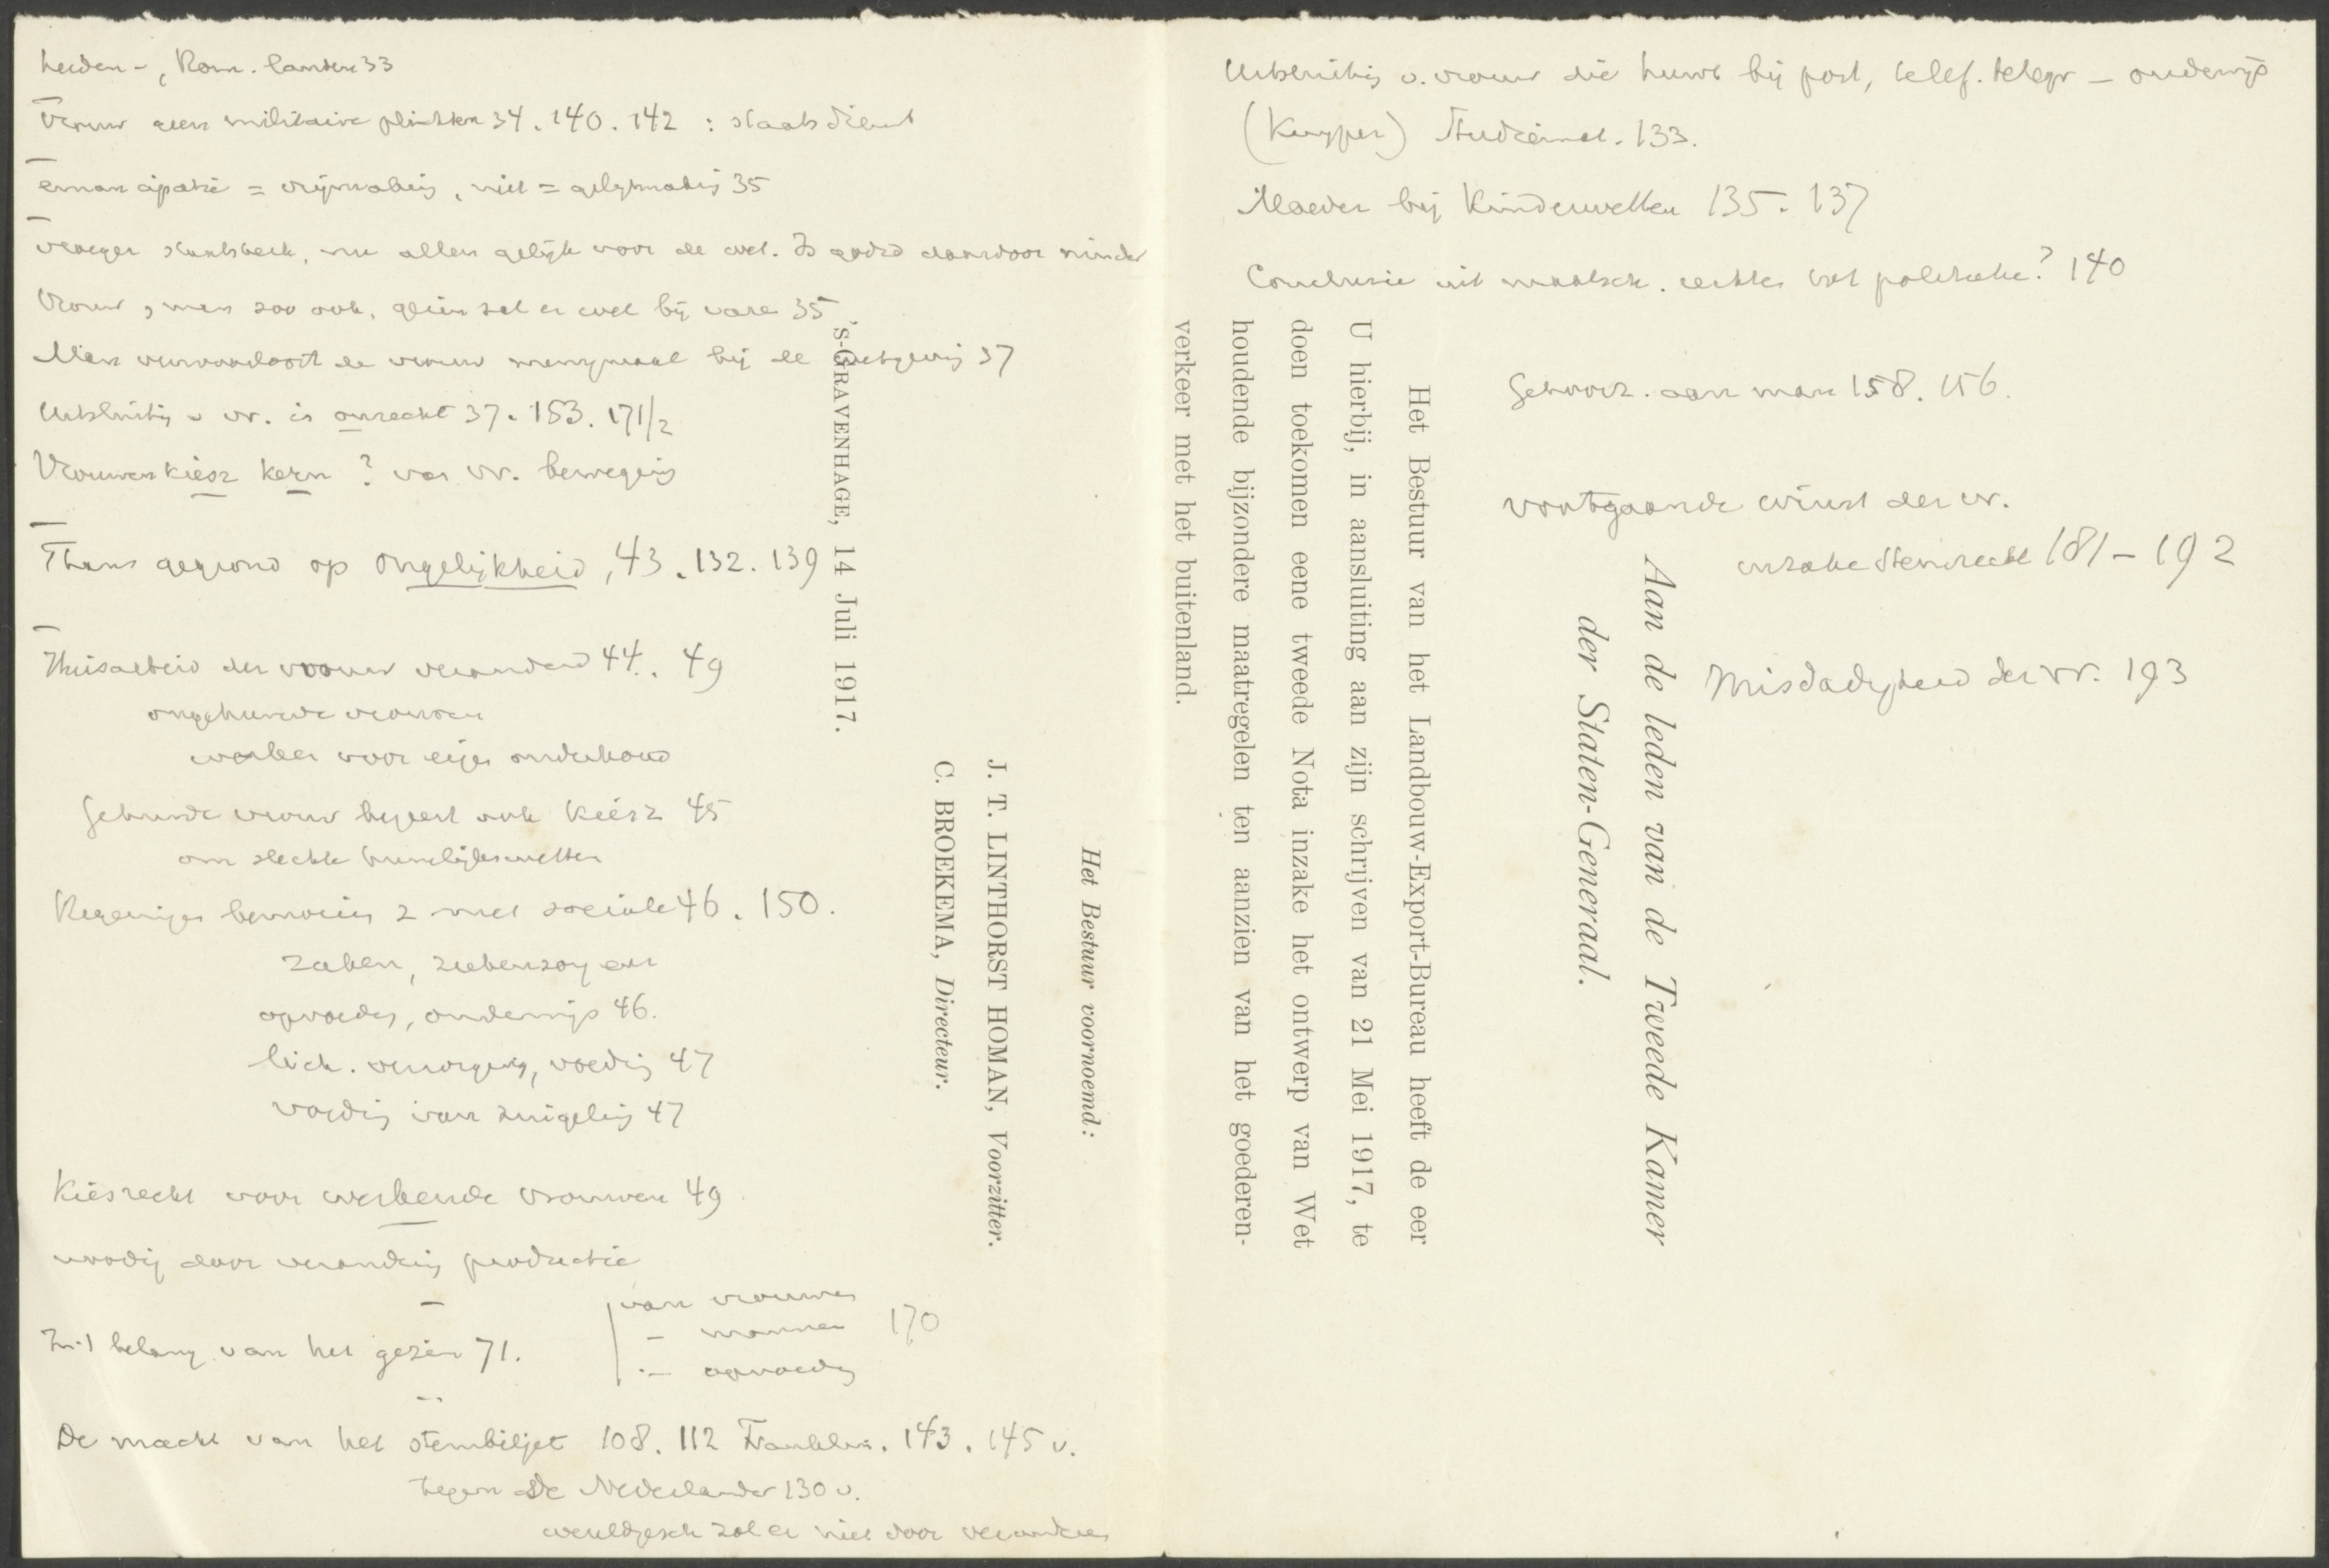 heiden-, Rom. landen 33
Vrouw geen militaire plichten 34. 140. 142 : staatsdienst
emancipatie = vrijmaking, niet = gelijkmaking 35
vroeger staatskerk, nu allen gelijk voor de wet. Is godsd daardoor minder
Vrouw, man zoo ook, gezin zal er wel bij varen 35
Man verwaarloost de vrouw menigmaal bij de wetgeving 37
Uitsluiting v vr. is onrecht 37. 153. 171/2
Vrouwenkiesr kern? van vr. beweging
Thans gegrond op ongelijkheid, 43. 132. 139
Huisarbeid der vrouw veranderd 44. 49
ongehuwde vrouwen
werken voor eigen onderhoud
Gehuwde vrouw begeert ook kiesr 45
om slechte huwelijkswetten
Regeeringen bemoeien z met sociale 46. 150.
zaken, ziekenzorg en
opvoeding, onderwijs 46.
lich. verzorging, voeding 47
voeding van zuigeling 47
Kiesrecht voor werkende vrouwen 49
noodig door verandering productie
In 't belang van het gezin 71.
van vrouwen
- mannen 170
- opvoeding
De macht van het stembiljet 108. 112 Franklin. 143. 145 v.
tegen De Nederlander 130 v.
wereldgesch zal er niet door veranderen
Uitsluiting v. vrouw die huwt bij post, telef. telegr - onderwijs
(Kuyper) 133.
Moeder bij Kinderwetten 135. 137
Conclusie uit maatsch. rechten tot politieke? 140
Gehoorz. aan man 158. 156.
vooruitgaande winst der vr.
inzake stemrecht 181 - 192
Misdadigheid der vr. 193
Aan de leden van de Tweede Kamer
der Staten-Generaal.
Het Bestuur van het Landbouw-Export-Bureau heeft de eer
U hierbij, in aansluiting aan zijn schrijven van 21 Mei 1917, te
doen toekomen eene tweede Nota inzake het ontwerp van Wet
houdende bijzondere maatregelen ten aanzien van het goederen-
verkeer met het buitenland.
Het Bestuur voornoemd:
J. T. LINTHORST HOMAN, Voorzitter.
C. BROEKEMA, Directeur.
's-GRAVENHAGE, 14 Juli 1917.